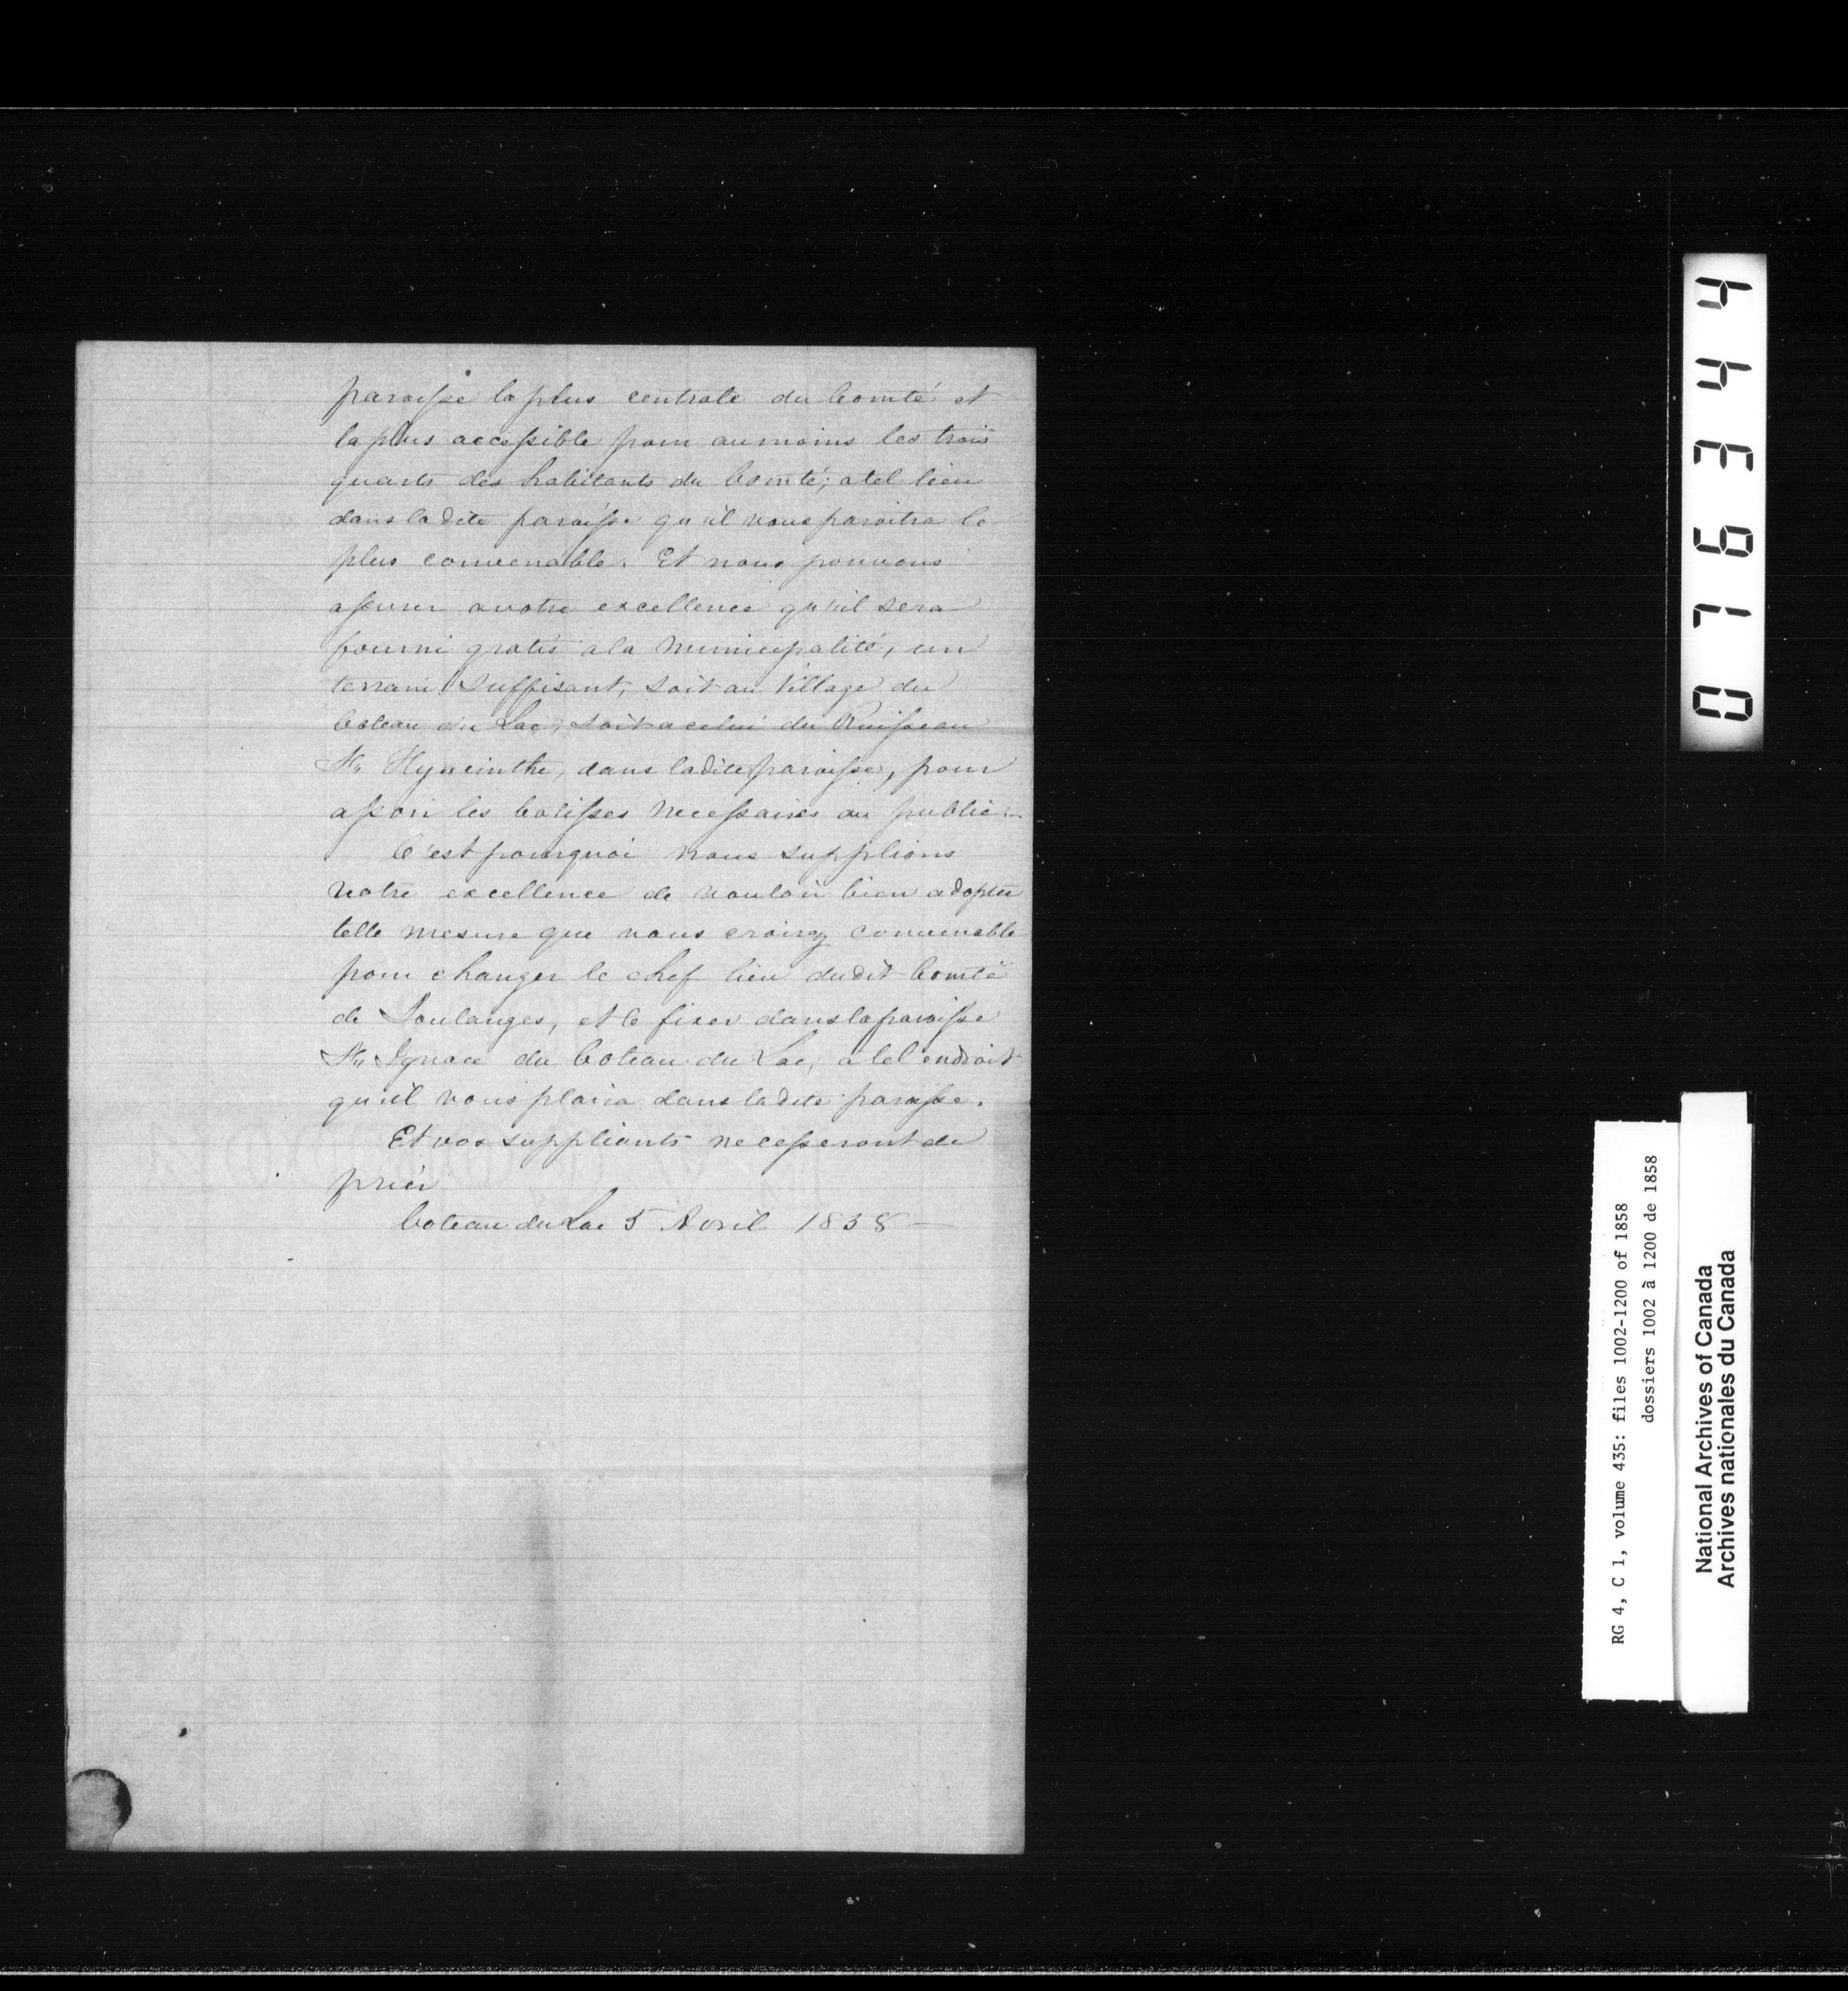 paroisse la plus centrale du Comté et
la plus accessible pour aumoins les trois
quarts des habitants du Comté; a tel lieu
dans la dite paroisse qu'il vous paroitra le
plus convenable. Et nous pouvons
assurer avotre excellence qu'il sera
fourni gratis a la municipalité, un
terrain suffisant, soit au Village du
Coteau du Lac, soit a celui du Ruisseau
St. Hyacinthe, dans ladite paroisse, pour
assoir les batisses necessaires au public.
C'est pourquoi nous supplions
votre excellence de vouloir bien adopter
telle mesure que vous croirez convenable
pour changer le chef lieu dudit Comté
de Soulanges, et le fixer dans la paroisse
St. Ignace du Coteau du Lac, a tel endroit
qu'il vous plaira dans la dite paroisse.
Et vos suppliants ne cesseront de
prier
Coteau du Lac 5 Avril 1858 —
076344
RG 4, C 1, volume 435: files 1002-1200 of 1858
dossiers 1002 à 1200 de 1858
National Archives of Canada
Archives nationales du Canada